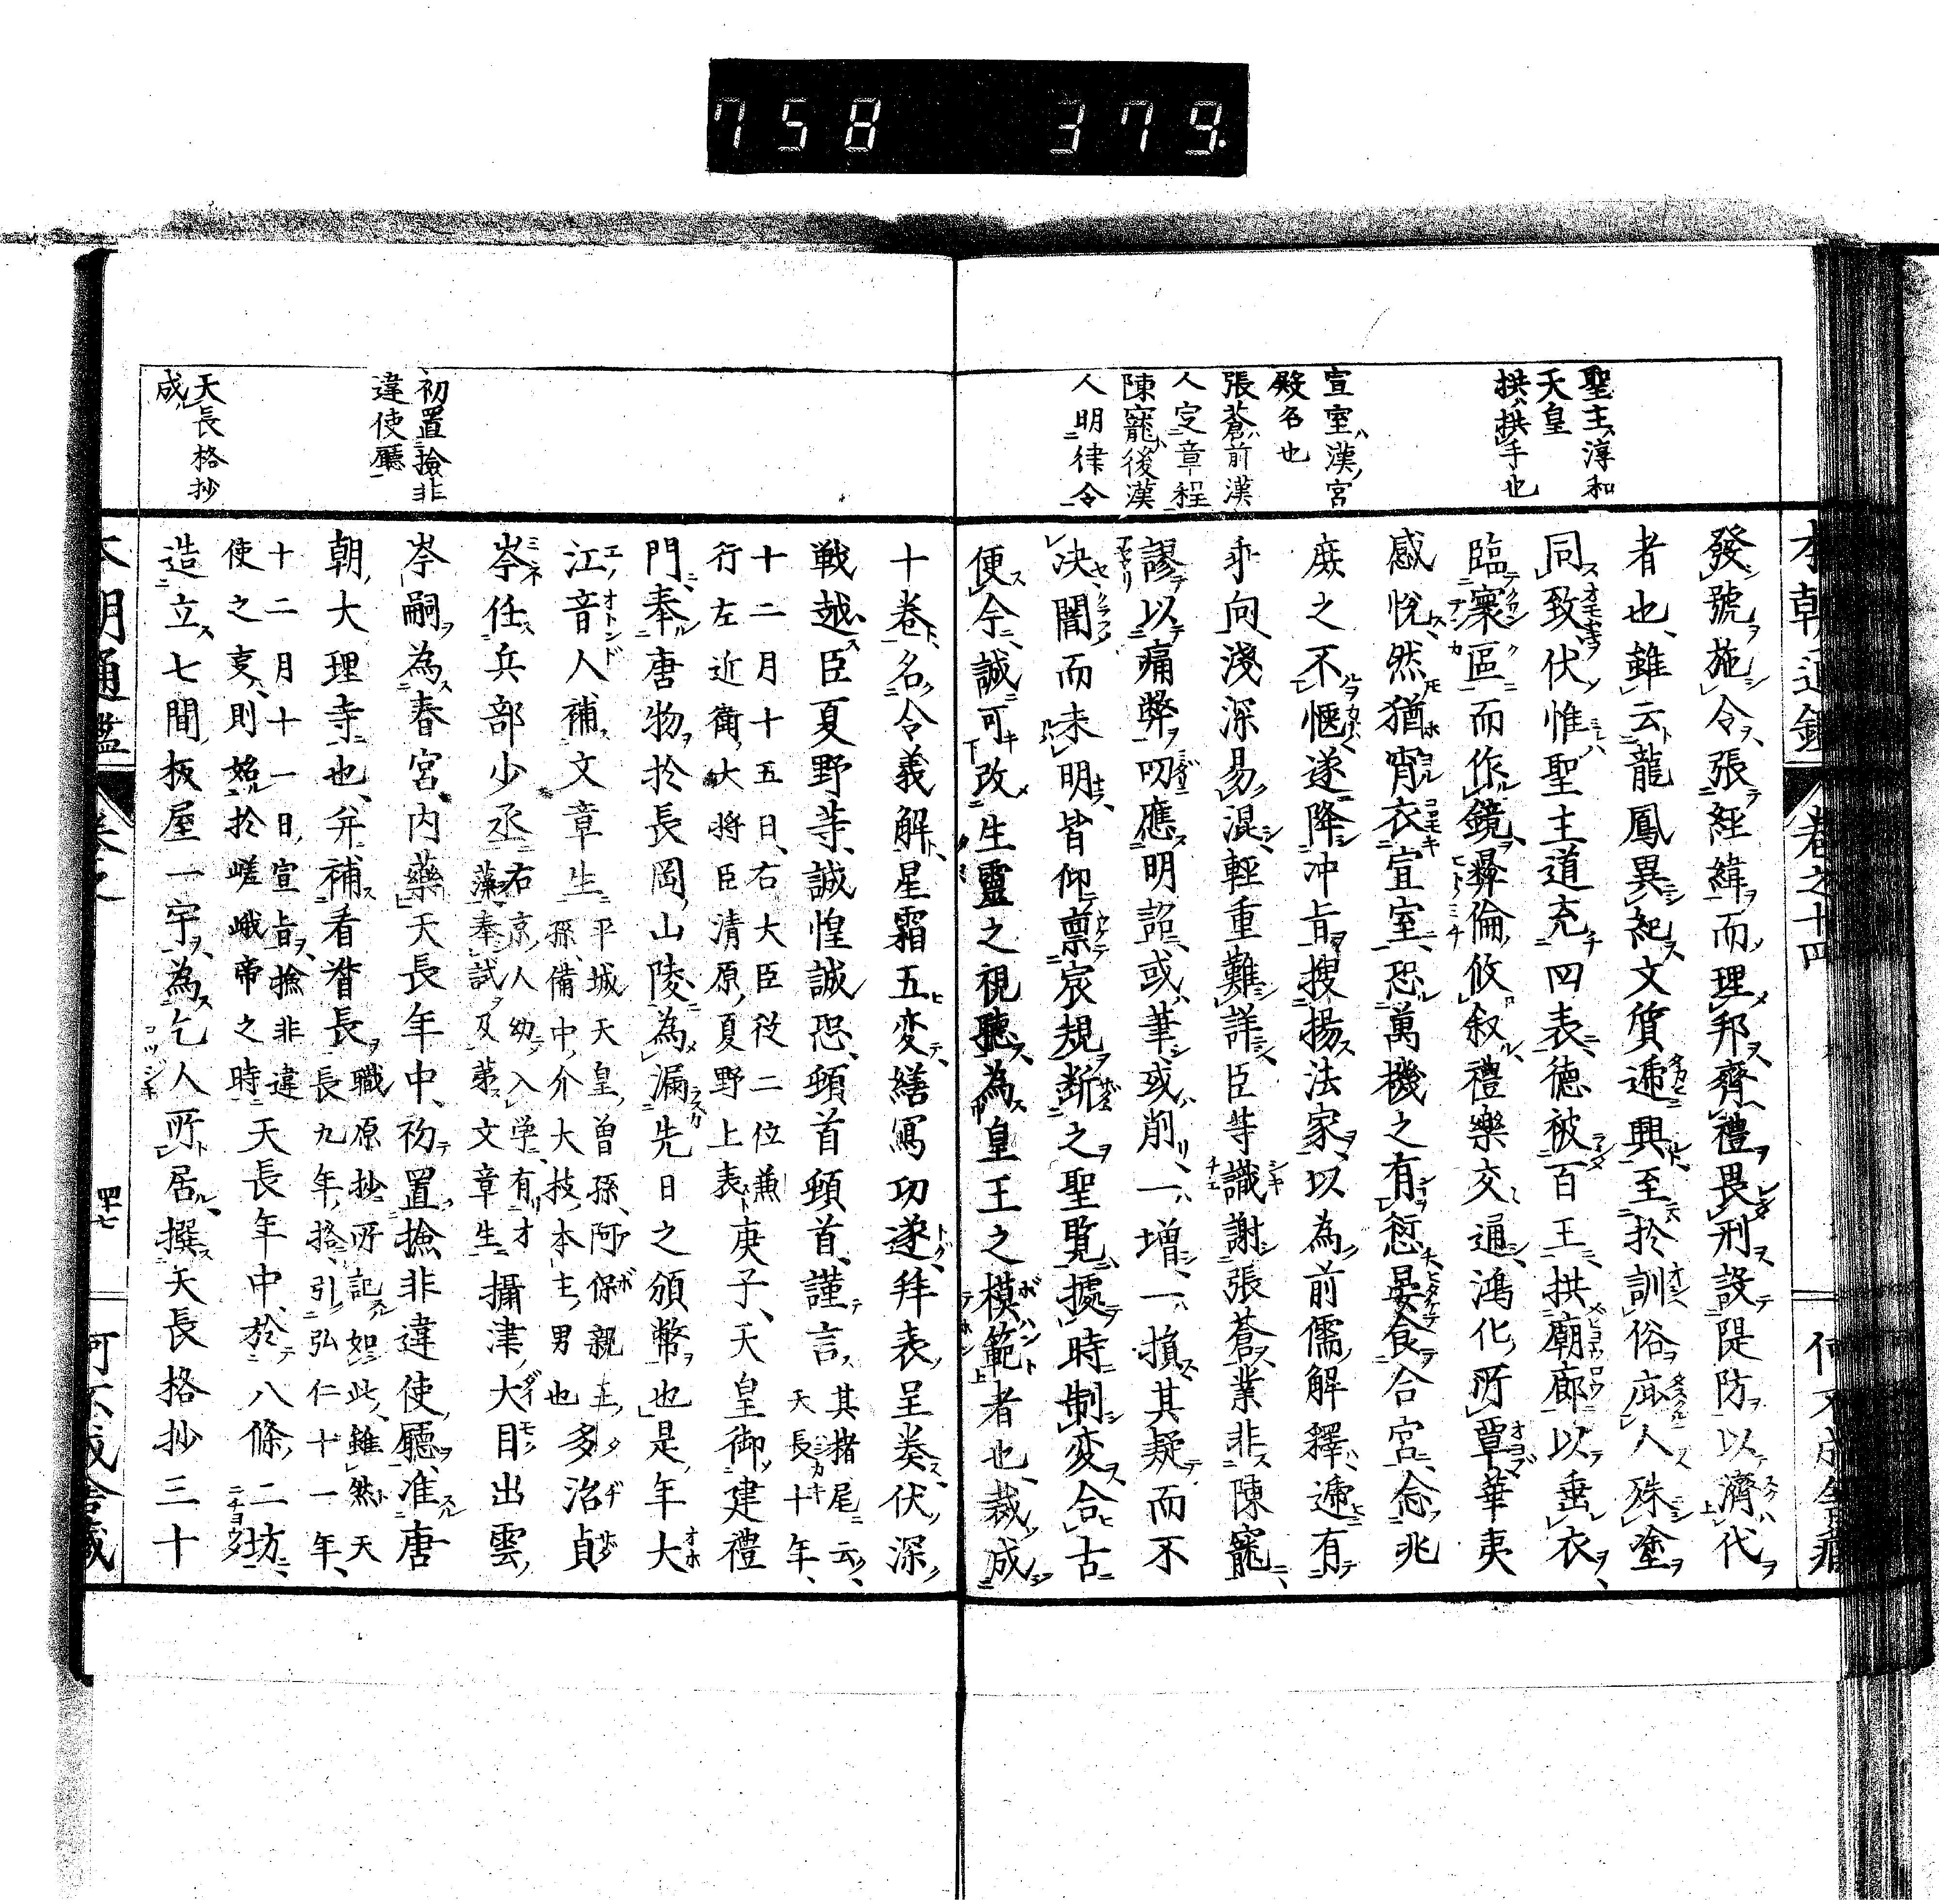 758 379.
聖主淳和
天皇
拱拱手也
宣室漢宮
殿名也
張蒼前漢
人定章程
陳寵後漢
人明律令
發號施令張經緯而理邦齊禮畏刑設隄防以濟代
者也雖云龍鳳異紀文質遞興至於訓俗庇人殊塗
同致伏惟聖主道充四表德被百王拱廟廊以垂衣
臨寰區而作鏡彝倫攸叙禮樂交通鴻化所覃華夷
感悅然猶宵衣宣室恐萬機之有愆晏食合宮念兆
庶之不愜遂降冲旨搜揚法家以為前儒解釋遞有
乖向淺深易混輕重難詳臣等識謝張蒼業非陳寵
謬以痛弊叨應明詔或筆或削一增一損其疑而不
決闇而未明皆仰稟宸規断之聖覧據時制変合古
便今誠可改生靈之視聽為皇王之模範者也裁成
十卷名令義解星霜五変繕寫功遂拜表呈奏伏深
戦越臣夏野等誠惶誠恐頓首頓首謹言
其楮尾云
天長十年
十二月十五日右大臣從二位兼
行左近衛大将臣清原夏野上表
庚子天皇御建禮
門奉唐物於長岡山陵為漏先日之頒幣也是年大
江音人補文章生
平城天皇曾孫阿保親王
孫備中介大枝本主男也
多治貞
岑任兵部少丞
右京人幼入学有才
藻奉試及第文章生
攝津大目出雲
岑嗣為春宮内藥天長年中初置撿非違使廳准唐
朝大理寺也弁補看督長
職原抄所記如此雖然天
長九年格引弘仁十一年
十二月十一日宣旨撿非違
使之叓則始於嵯峨帝之時
天長年中於八條二坊
造立七間板屋一宇為乞人所居撰天長格抄三十
初置撿非
違使廳
天長格抄
成
本朝通鑑
卷之十四
四十七